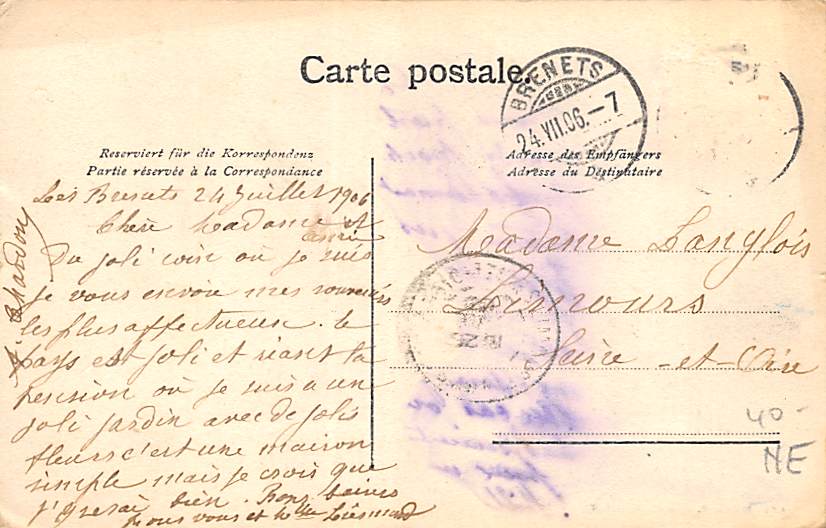 Carte postale.
BRENETS
24.VII.06.-7
Reserviert für die Korrespondenz
Partie réservée à la Correspondance
Adresse des Empfängers
Adresse du Destinataire
Les Brenets 24 Juillet 1906
Chère Madame et
amie
Du joli coin où je suis
je vous envoie mes souvenirs
les plus affectueux. le
pays est joli et riant la
pension où je suis a un
joli jardin avec de jolis
fleurs c'est une maison
simple mais je crois que
j'y serai bien. Bons baisers
pour vous et Mlle
Madame Langlois
Limours
Seine-et-Oise
40-
NE